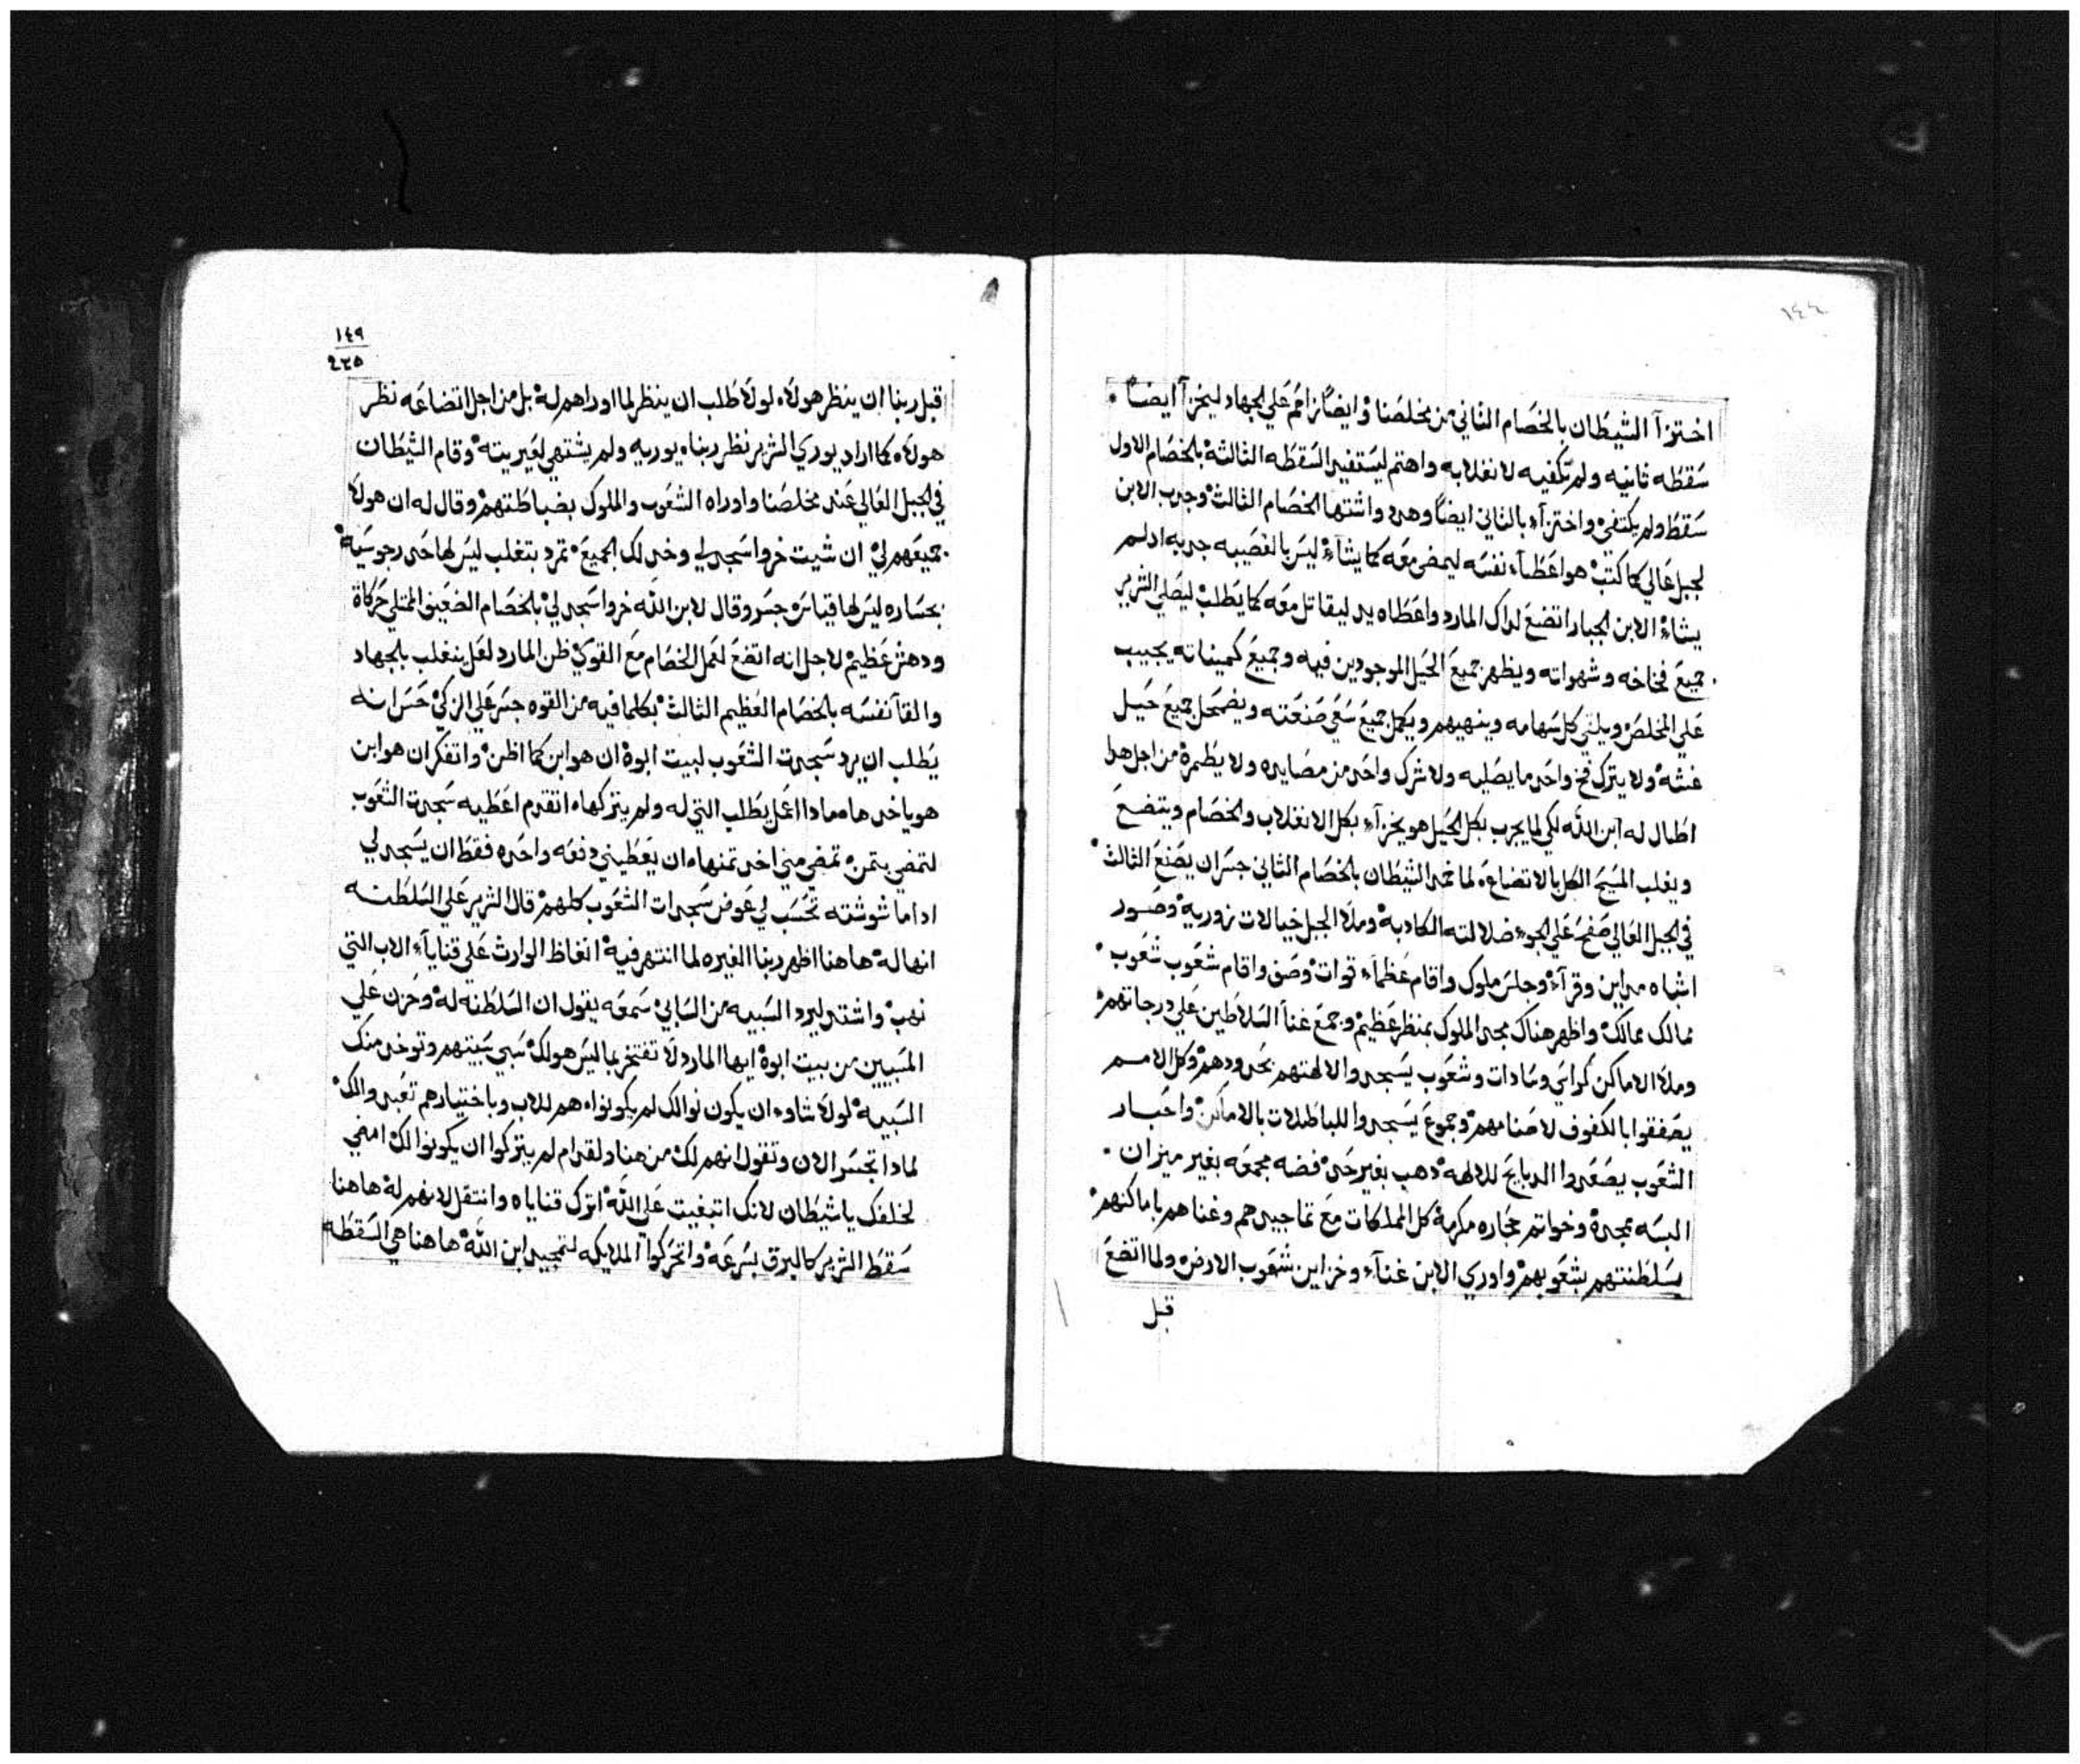 ١٤٤
اختزآ الشيطان بالخصام الثاني من مخلصنا وايضًا زاحم علي الجهاد ليخزآ ايضًا
سقطه ثانيه ولم تكفيه لانغلابه واهتم ليستفير السقطه الثالثة بالخصام الاول
سقط ولم يكتفي واختزآء بالثاني ايضًا وهدء واشتها الخصام الثالث وجدب الابن
لجبل عالي كما كتب هو اعطآء نفسه ليمضي معه كما يشآء ليس بالغصيبه جدبه اد لم
يشاء الابن الجبار اتضع لداك المارد واعطاه يد ليقاتل معه كما يطلب ليصلي الشرير
جميع فخاخه وشهواته ويظهر جميع الحيل الموجودين فيه وجميع كميناته يجيب
علي المخلص ويلقي كل سهامه وينهيهم ويكمل جميع سعي صنعته ويضمحل جميع حيل
غشه ولا يترك فخ واحد ما يصليه ولا شرك واحد من مصايده ولا يطمرة من اجل هدا
اطال له ابن الله لكي لما يجرب بكل الحيل هو يخزآء بكل الانغلاب والخصام ويتضع
ويغلب المسيح الكل بالاتضاع لما خمد الشيطان بالخصام الثاني جسر ان يصنع الثالث
في الجبل العالي صفح علي الجوء ضلالته الكادبة وملا الجبل خيالات زورية وصور
اشباه مداين وقرآء وجلس ملوك واقام عظمآء قوات وصف واقام شعوب شعوب
ممالك ممالك واظهر هناك مجد الملوك بمنظر عظيم وجمع غنآ السلاطين علي درجاتهم
وملا الاماكن كراسي وسادات وشعوب يسجدوا لالهتهم بحدودهم وكل الامم
يصفقوا بالكفوف لاصنامهم وجموع يسجدوا للباطلات بالاماكن واحبار
الشعوب يصعدوا الدبايح للالهة دهب بغير حد فضه مجمعه بغير ميزان
البسه مجدة وخواتم حجاره مكرمة كل المملكات مع تماجيدهم وغناهم باماكنهم
بسلطنتهم بشعوبهم واوري الابن غنآء وخزاين شعوب الارض ولما اتضع
قبل
١٤٩
٢٣٥
قبل ربنا ان ينظر هولاء لولا طلب ان ينظر لما اوراهم له بل من اجل اتضاعه نظر
هولاء كما اراد يوري الشرير نظر ربناء يوريه ولم يشتهي لغير بيته وقام الشيطان
في الجبل العالي عند مخلصنا واوراه الشعوب والملوك بضباطتهم وقال له ان هولا
جميعهم لي ان شيت خر واسجد لي وخد لك الجميع تمرد بتغلب ليس لها حد رجوسية
بجساره ليس لها قياس جسر وقال لابن الله خر واسجد لي بالخصام الضعيف الممتلي حركاة
ودهش عظيم لاجل انه اتضع لعمل الخصام مع القوي ظن المارد لعل ينغلب بالجهاد
والقآ نفسه بالخصام العظيم الثالث بكلما فيه من القوه جسر علي الزكي حس انه
يطلب ان يرد سجدت الشعوب لبيت ابوة ان هو ابن كما اظن واتفكر ان هو ابن
هو ياخدها مما دا اعمل يطلب التي له ولم يتركهاء اتقدم اعطيه سجدت الشعوب
لتمضي بتمن تمضي مني اخد تمنهاء ان يعطيني دفعه واحده فقط ان يسجد لي
اداما شوشته تحسب لي عوض سجدات الشعوب كلهم قال الشرير علي السلطنه
انها له هاهنا اظهر ربنا الغيره لما انتهر فية اتغاظ الوارث علي قنايآء الاب التي
نهب واشتد ليرد السبيه من السابي سمعه يقول ان السلطنة له وحزن علي
المسبيين من بيت ابوة ايها المارد لا تفتخر بما ليس هو لك سبي سبيتهم وتوخد منك
السبية لولا شاوء ان يكون نوالك لم يكونواء هم للاب وباختيارهم تعبدوالك
لمادا تجسر الان وتقول انهم لك من هنا ولقدام لم يتركوا ان يكونوا لك امضي
لخلفك ياشيطان لانك اتبغيت علي الله اترك قناياه وانتقل لانهم له هاهنا
سقط الشرير كالبرق بسرعة واتحركوا الملايكه لتمجيد ابن الله هاهنا هي السقطه